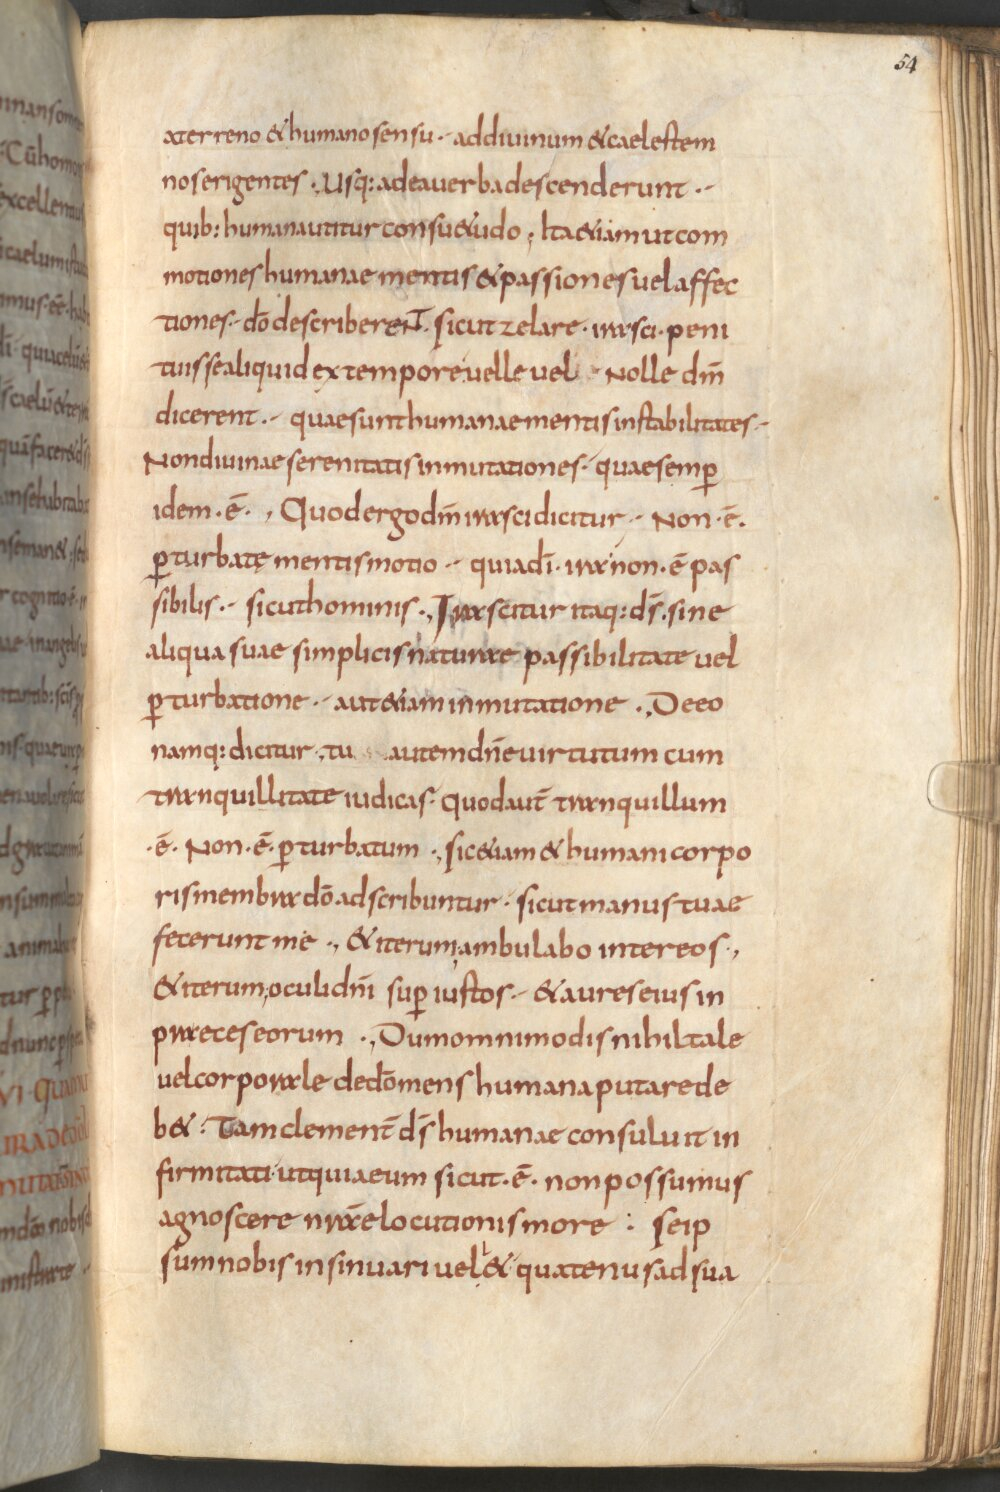 54
aterreno & humano sensu · addiuinum & caelestem
nos erigentes · Usq: adea uerba descenderunt ·
quib: humana utitur consu&udo ; Ita &iam ut com
motiones humanae mentis & passiones uel affec
tiones · dō describerent · sicut zelare · irasci · peni
tuisse aliquid ex tempore uelle uel · Nolle dm̄
dicerent · quae sunt humanae mentis instabilitates ·
Non diuinae serenitatis inmutationes · quae semp̄
idem · ē · , Quod ergo dm̄ irasci dicitur · Non · ē ·
p̄turbatę mentis motio · quia dī · ira non · ē pas
sibilis · sicut hominis ·, Irascitur itaq: ds̄ · sine
aliqua suae simplicis naturae passibilitate uel
p̄turbatione · aut &iam inmutatione ·, De eo
namq: dicitur · tu autem dn̄e uirtutum cum
tranquillitate iudicas · quod aut̄ tranquillum
· ē · Non · ē · p̄turbatum ·, sic &iam & humani corpo
ris membra dō adscribuntur · sicut manus tuae
fecerunt me ·, & iterum, ambulabo inter eos ·,
& iterum, oculi dn̄i sup̄ iustos · & aures eius in
praeces eorum ·, Dum omnimodis nihil tale
uel corporale de dō mens humana putare de
b& · Tam clement̄ ds̄ humanae consuluit in
firmitati · ut quia eum sicut · ē · non possumus
agnoscere nr̄ae locutionis more : seip
sum nobis insinuari uell& quatenus ad sua